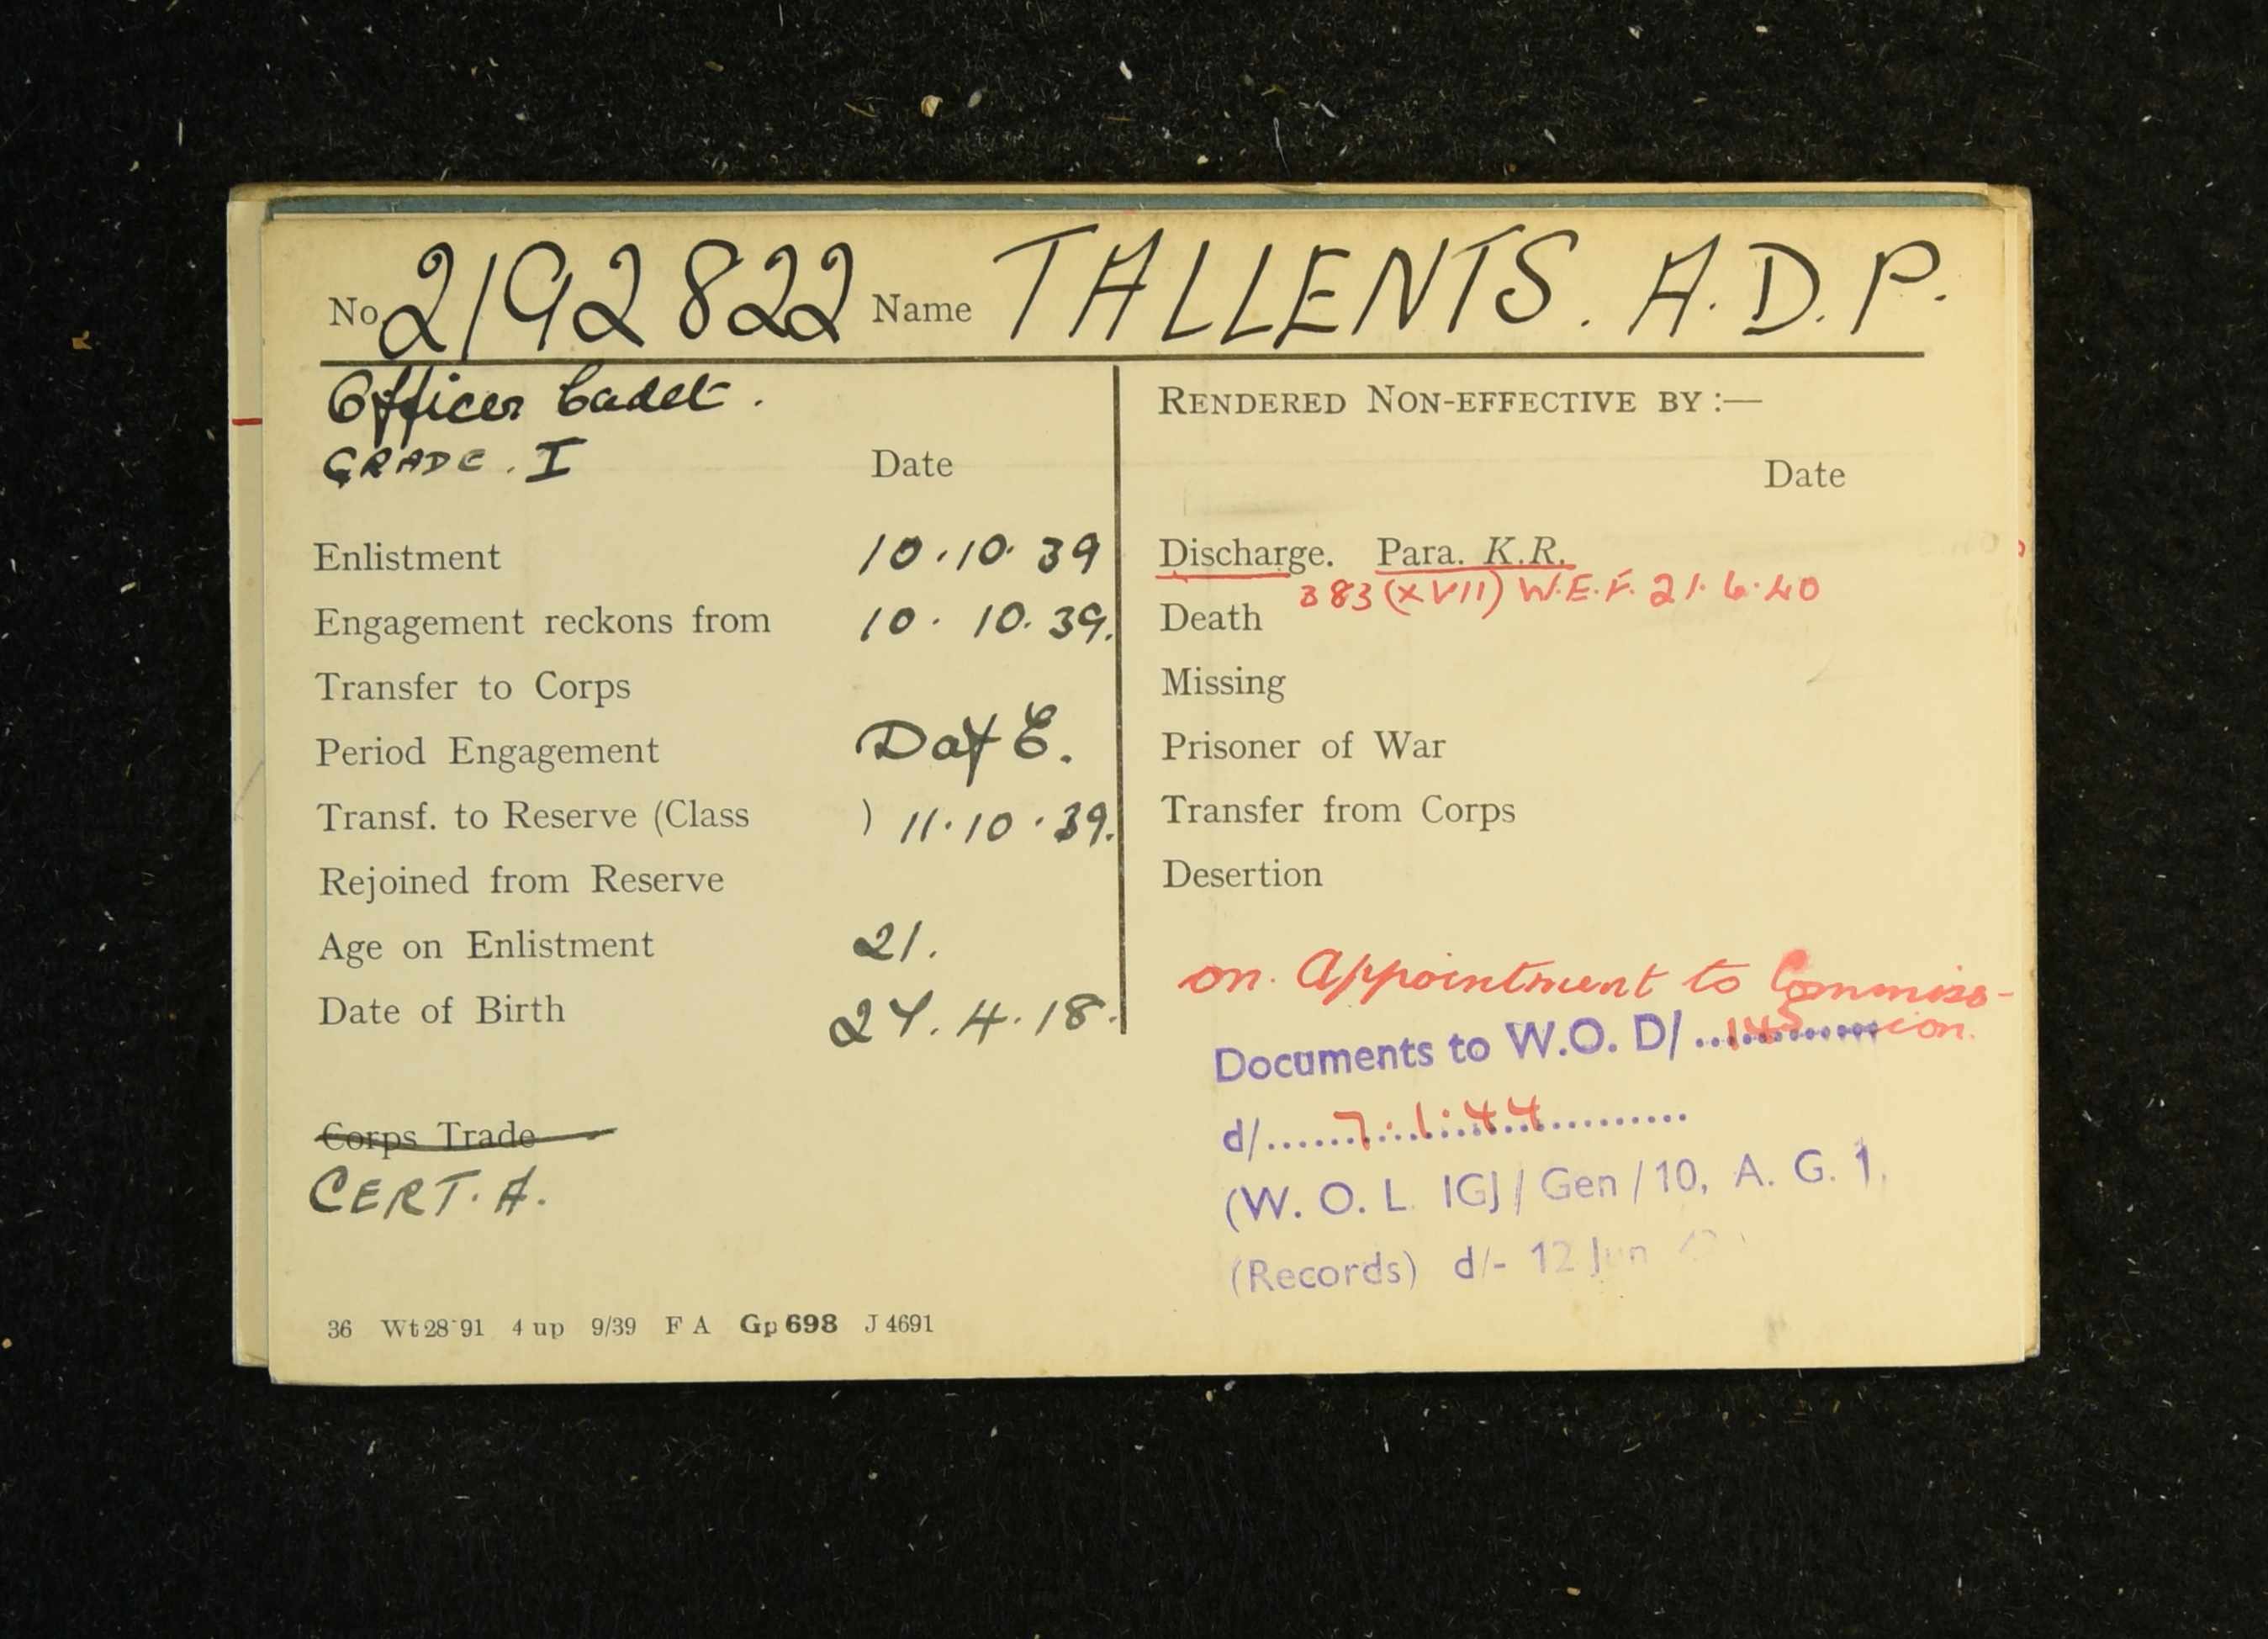 No 2192822 Name TALLENTS. A.D.P.
Officer Cadet.
GRADE. I Date
Enlistment 10.10.39
Engagement reckons from 10.10.39.
Transfer to Corps
Period Engagement D of E.
Transf. to Reserve (Class ) 11.10.39.
Rejoined from Reserve
Age on Enlistment 21.
Date of Birth 24.4.18.
Corps Trade
CERT. A.
36 Wt 28 91 4 up 9/39 F A Gp 698 J 4691
RENDERED NON-EFFECTIVE BY :—
Date
Discharge. Para. K.R.
383 (XVII) W.E.F. 21.6.40
Death
Missing
Prisoner of War
Transfer from Corps
Desertion
on. Appointment to Commiss-
ion.
Documents to W.O. D/ ... 145
d/ ... 7.1.44 ...
(W. O. L. IGJ / Gen / 10, A. G. 1.
(Records) d/- 12 Jun